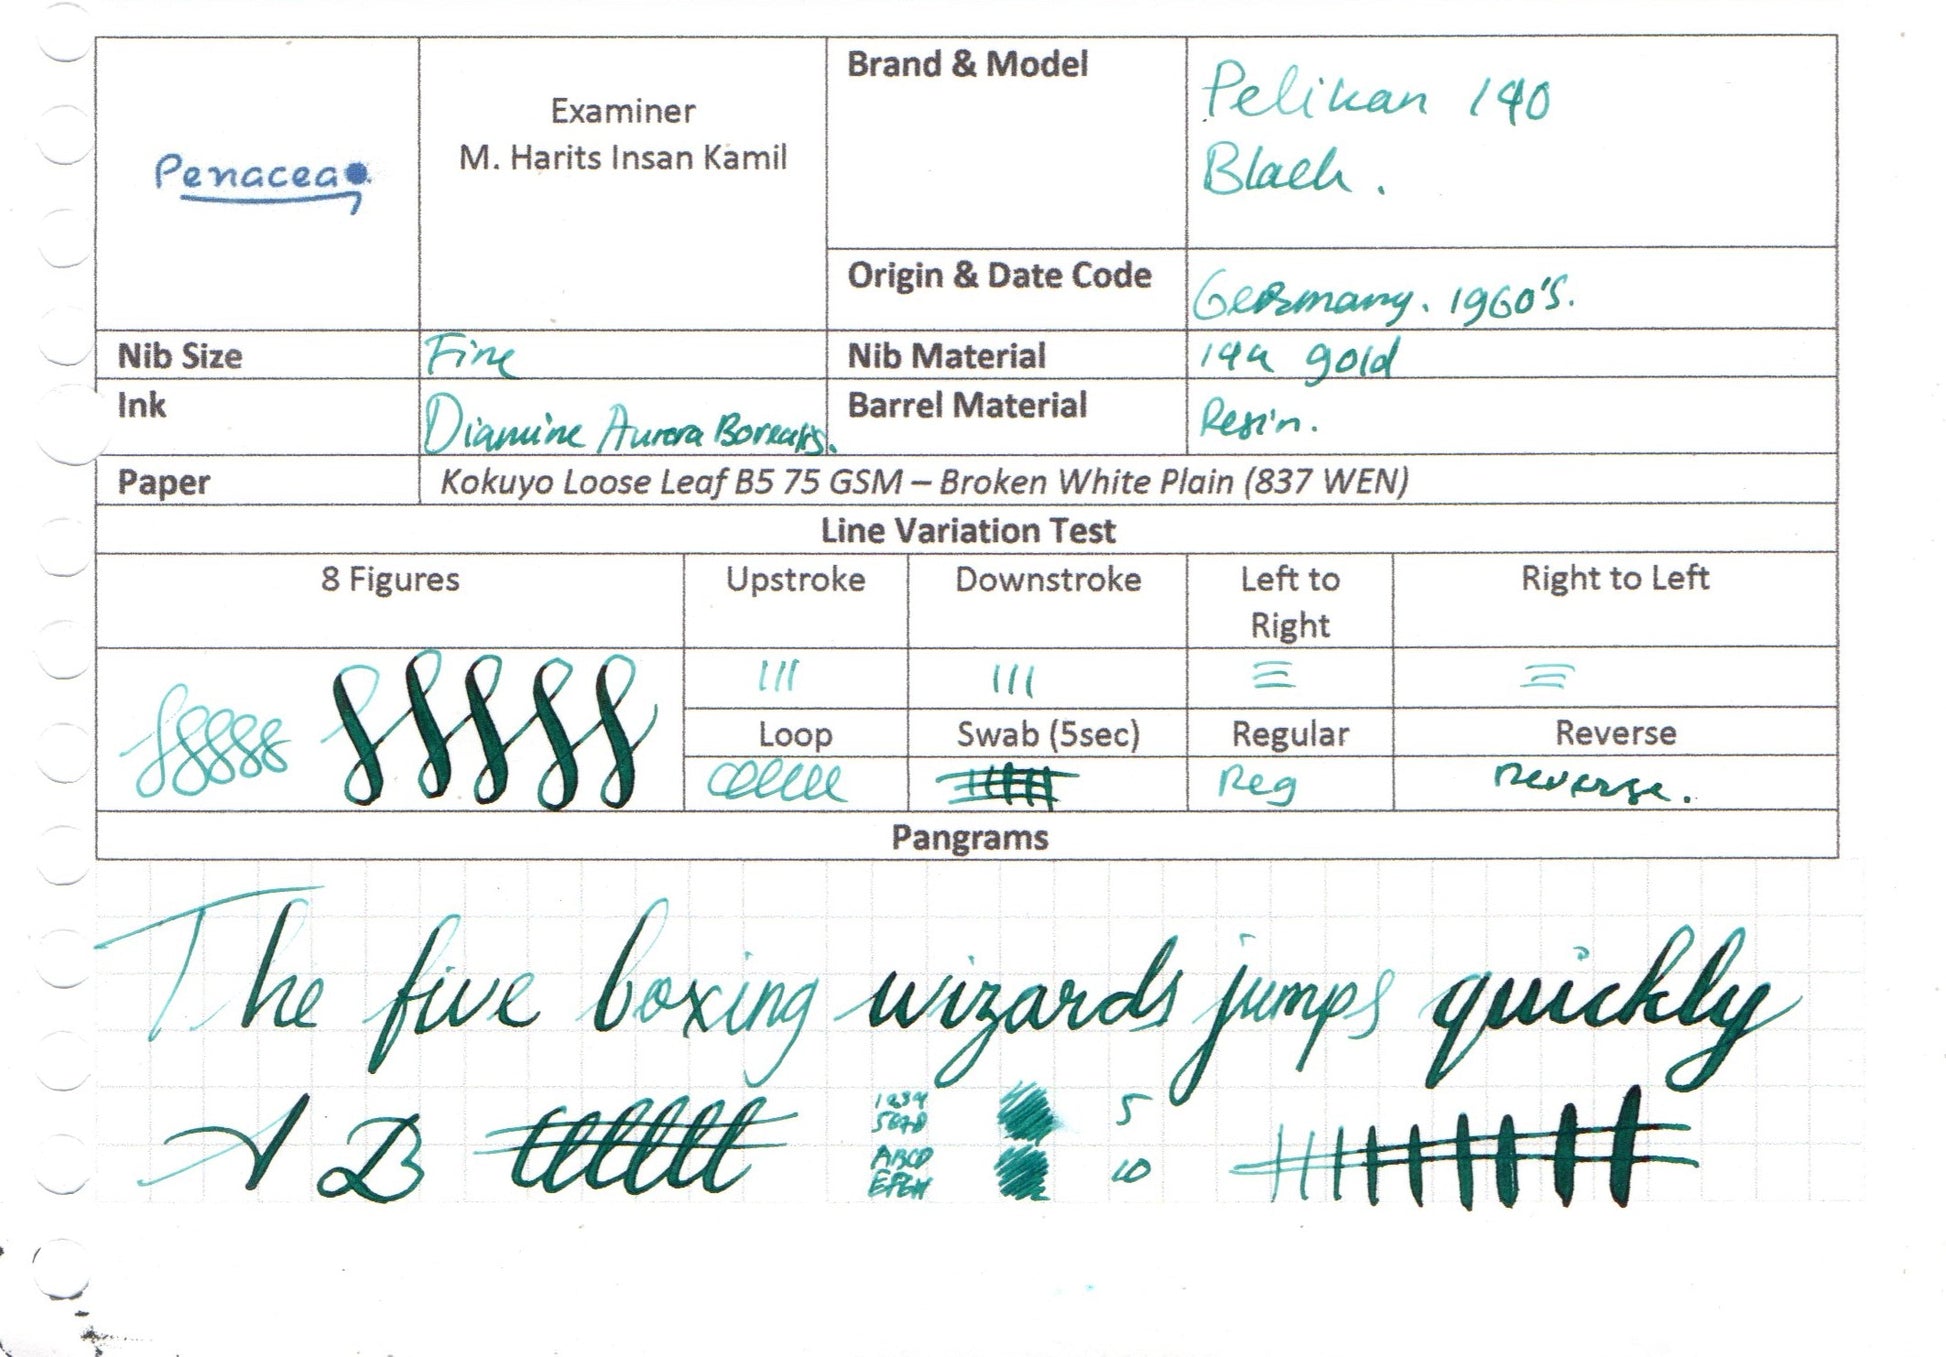 Penacea
Examiner
M. Harits Insan Kamil
Brand & Model
Pelikan 140
Black.
Origin & Date Code
Germany. 1960's.
Nib Size
Fine
Nib Material
14k gold
Ink
Diamine Aurora Borealis.
Barrel Material
Resin.
Paper
Kokuyo Loose Leaf B5 75 GSM – Broken White Plain (837 WEN)
Line Variation Test
8 Figures
Upstroke
Downstroke
Left to
Right
Right to Left
Loop
Swab (5sec)
Regular
Reverse
Reg
Reverse.
Pangrams
The five boxing wizards jumps quickly
A B
1234
5678
ABCD
EFGH
5
10